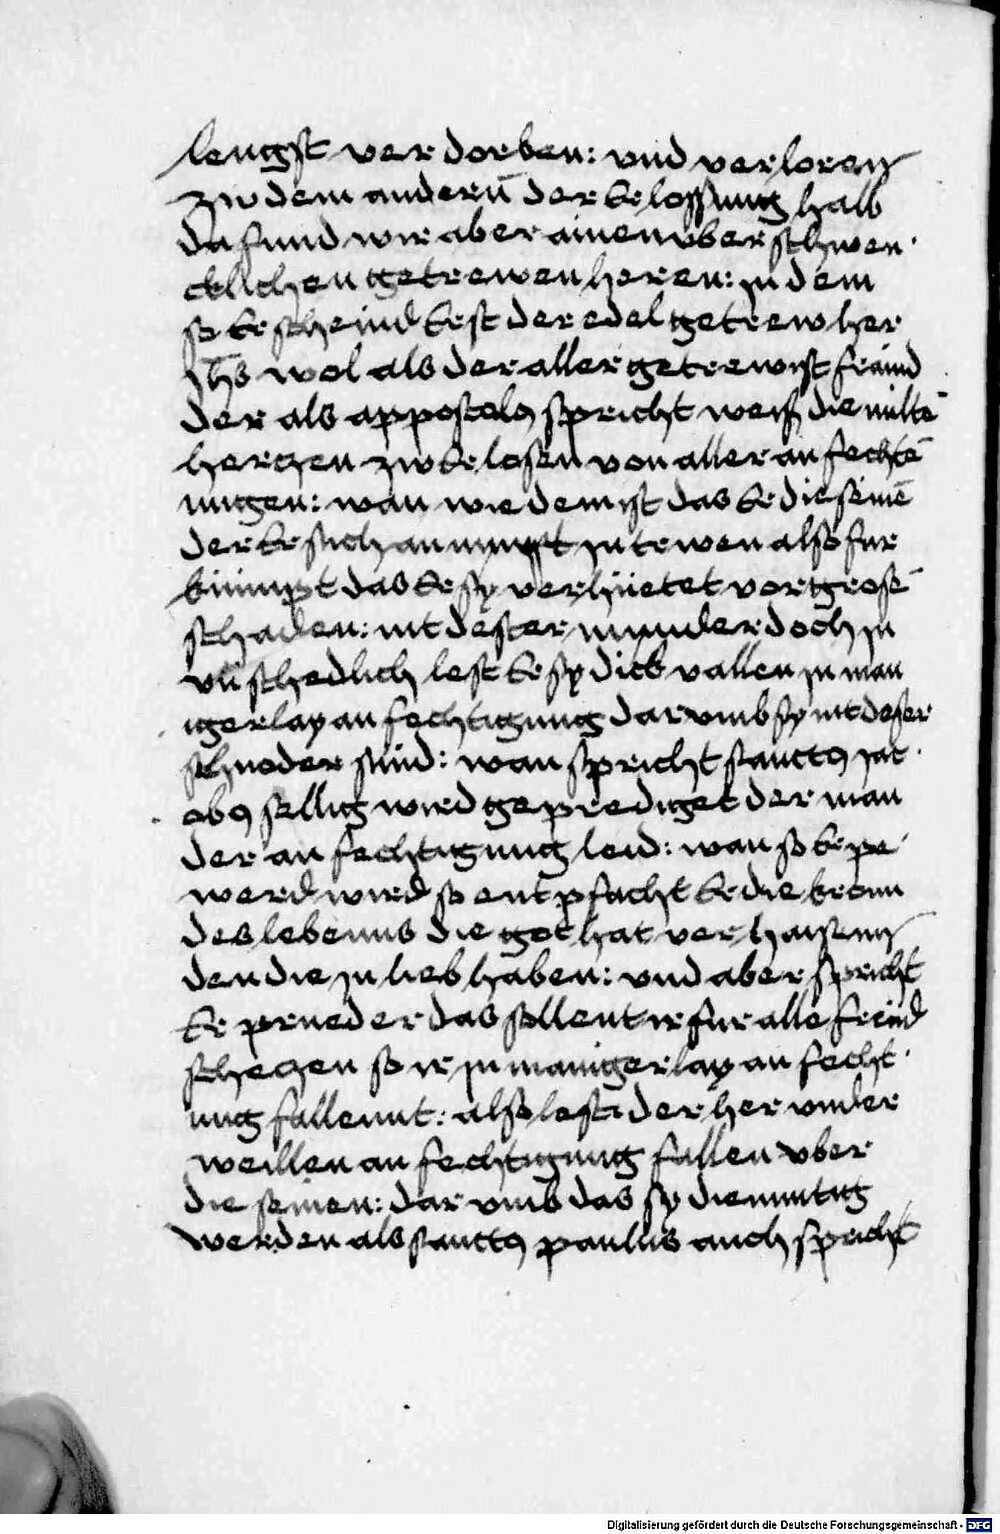 lengst verdorben: vnd verloren
zw dem anderñ der erlossung halb
da fund wir aber ainen vber schwen
cklichen getrewen heren: in dem
so er scheind erst der edel getrew her
Jhs wol als der aller getrewist fraind
der als appostolus spricht weiss die milte
hertzen zw erlosen von aller an fechtē
ungen: wan wie dem ist das er die seinē
der er sich an nympt in trewen also fur
kumpt das er sy verhüetet vor grosē
schaden: nit dester mynder doch in
vnschedlich lest er sy dick vallen in man
igerlay an fechtigung dar vmb sy nit deser
schnoder sind: wan spricht sanctus Jac
obus sellig wird geprediget der man
der an fechtigung leid: wan so er pe
werd wird so entpfacht er die kronn
des lebenns die got hat verhaisenn
den die in lieb haben: vnd aber spricht
er prueder das sollent ir fur alle freid
scheczen so ir in manigerlay an fecht
ung fallennt: also lest der her vnder
weillen an fechtigung fallen vber
die seinen: dar vmb das sy diemutig
werden als sanctus paulus auch spricht
Digitalisierung gefördert durch die Deutsche Forschungsgemeinschaft - DFG